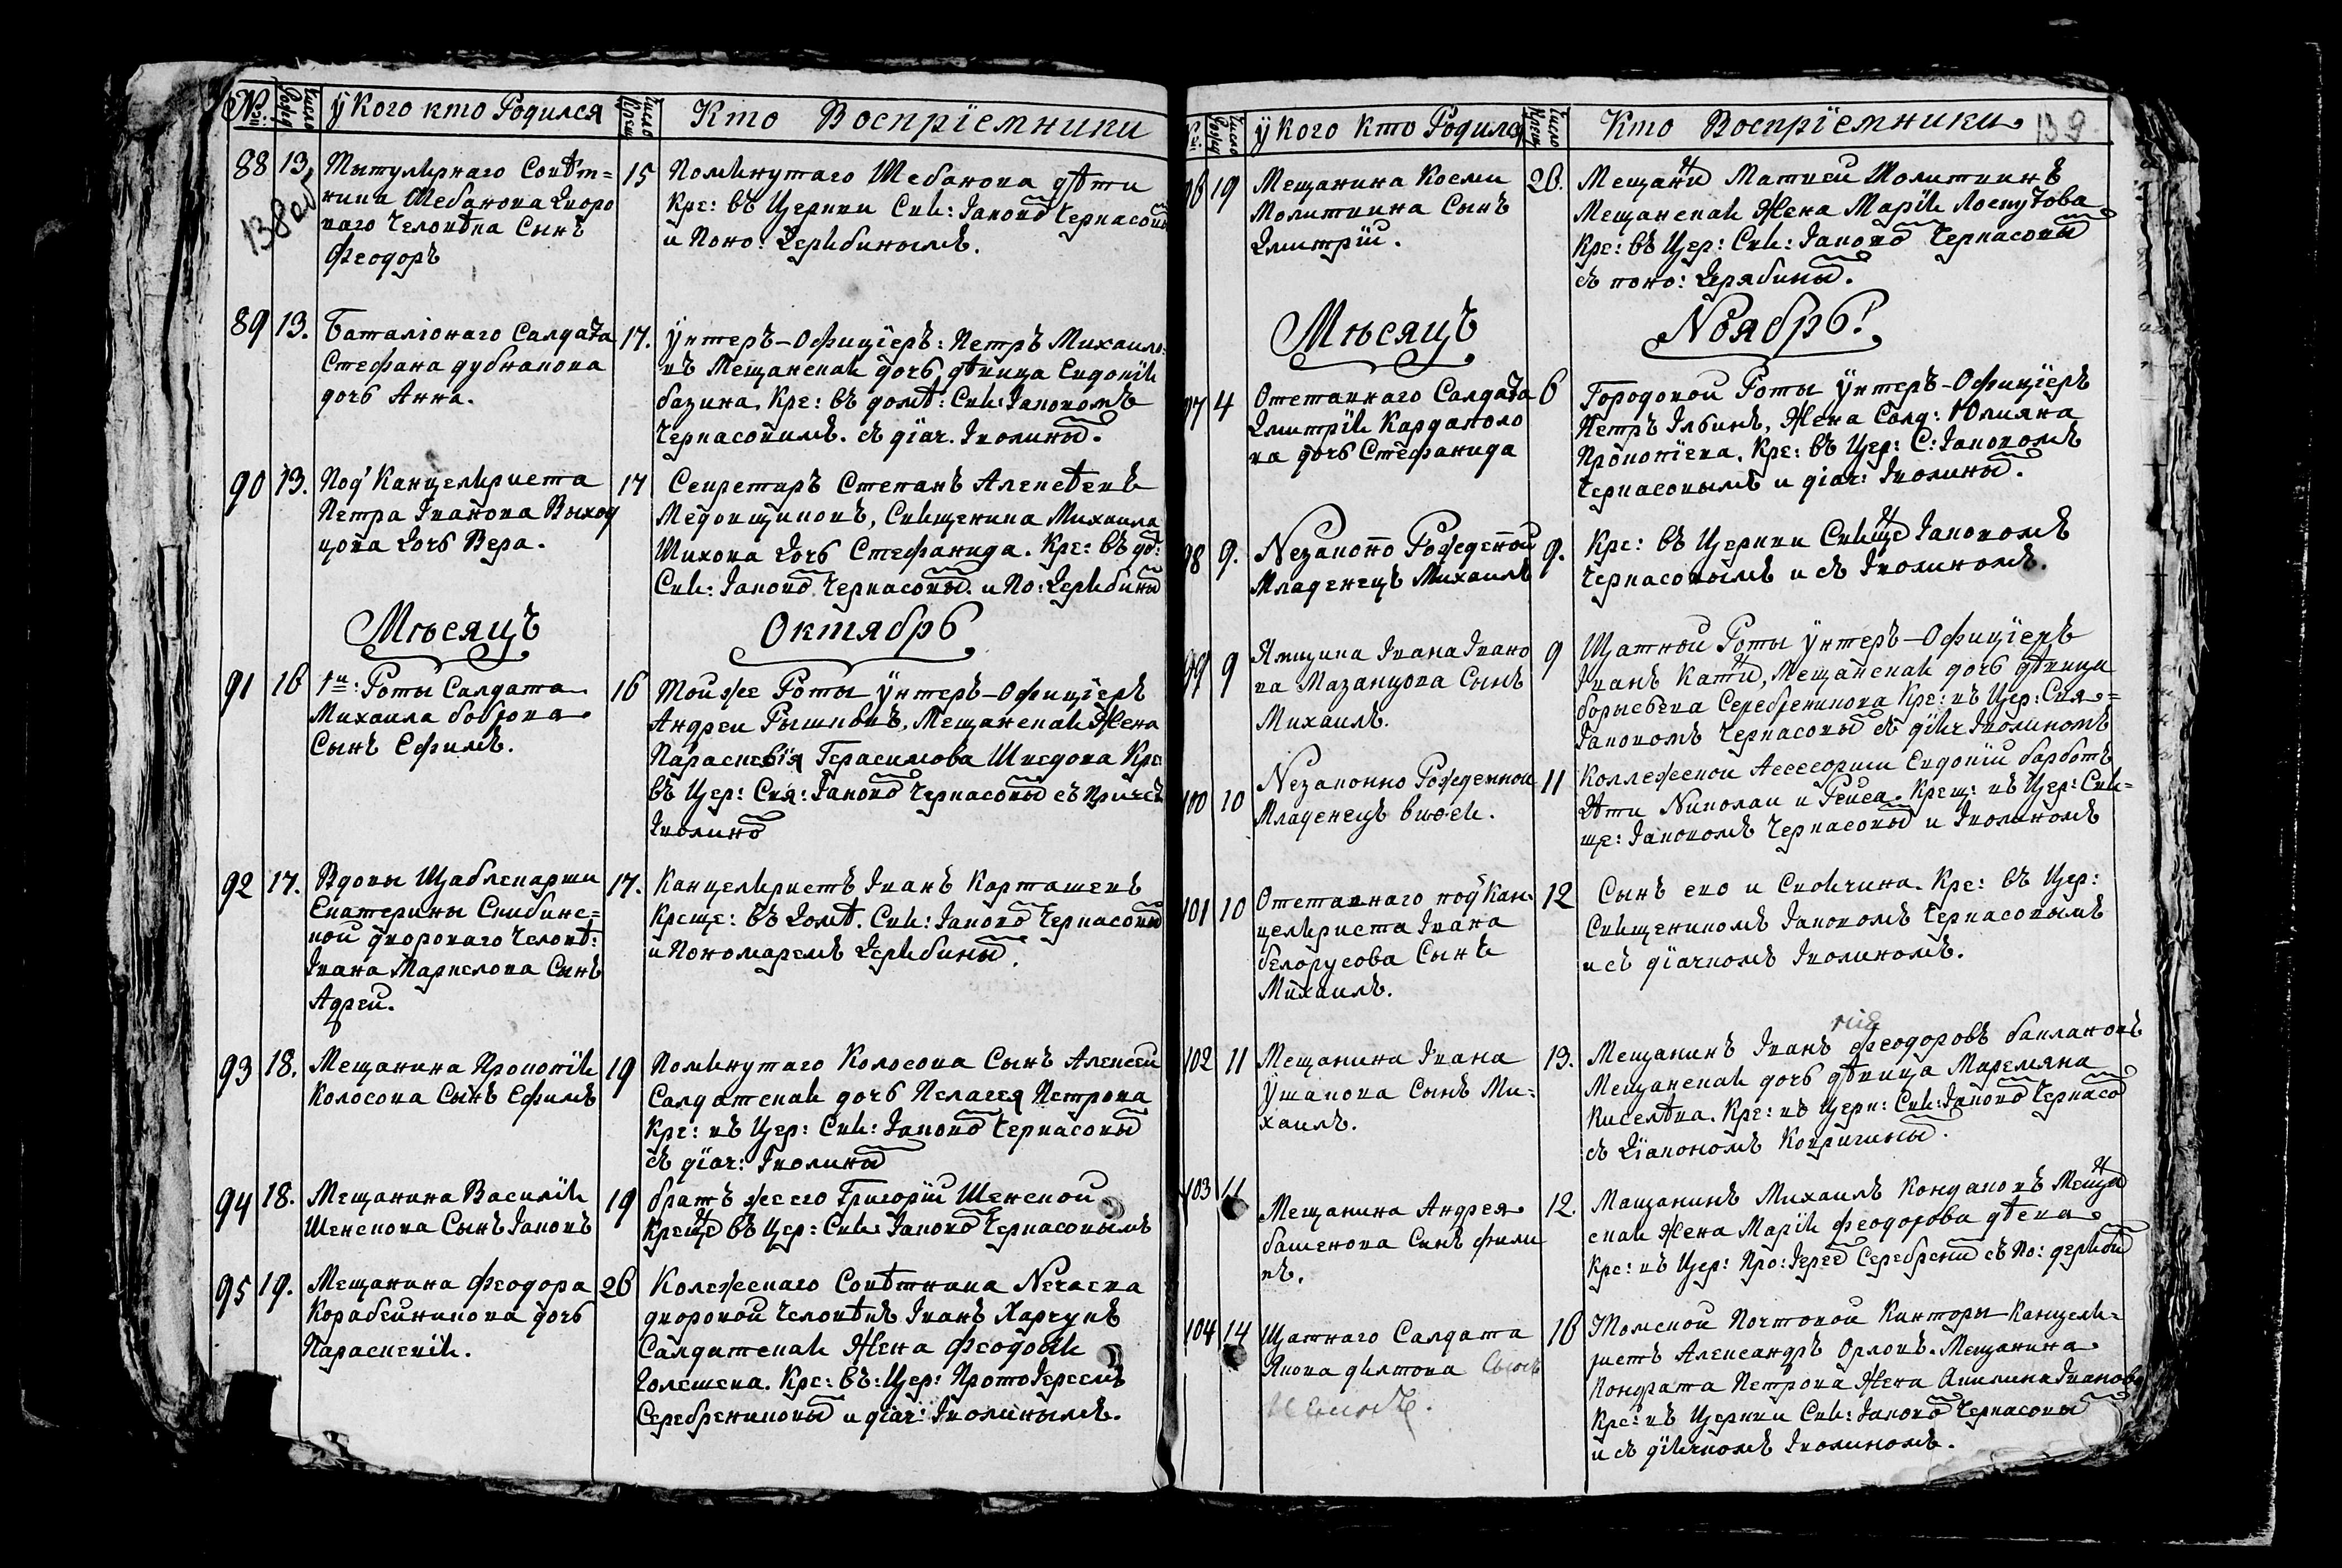 № Число Рожд У кого кто Родился Число Крещ Кто Воспріемники
138 об
88 13 Титулярнаго Совѣт=
ника Шебанова Дворо
ваго Человѣка Сынъ
Феодоръ
15 Помянутаго Шебанова дѣти
Кре: въ Церкви Свя: Іаково Черкасовы
и Поно: Дерябинымъ.
89 13. Баталіонаго Салдата
Стефана дубнакова
дочь Анна.
17. Унтеръ-Офицеръ: Петръ Михаило:
въ Мещанская дочь дѣвица Евдокія
базина, Кре: въ домѣ: Свя: Іаковомъ
Черкасовимъ. съ діач. Іволины.
90 13. Под Канцеляриста
Петра Іванова Выход
цова Дочь Вера.
17 Секретаръ Степанъ Алексѣевъ
Медовщиковъ, Священика Михаила
Шихова Дочь Стефанида. Кре: въ до:
Свя: Іаково Черкасовы. и По: Дерябины
Мѣсяцъ Октябрь
91 16 1й: Роты Салдата
Михаила боброва
Сынъ Ефимъ.
16 Тои же Роты Унтеръ-Офицеръ
Андреи Рышковъ, Мещанская Жена
Параскевія Герасимова Шведова Кре
въ Цер: Свя: Іаково Черкасовы съ Причет
Іволино
92 17. Вдовы Щаблыкарши
Екатерины Скибинс=
кой двороваго Человѣ:
Івана Маркелова Сынъ
Адреи.
17. Канцеляристъ Іванъ Карташевъ
Креще: въ Домѣ. Свя: Іаково Черкасовы
и Пономаремъ Дерябины.
93 18. Мещанина Прокопія
Колосова Сынъ Ефимъ
19 Помянутаго Колосова Сынъ Алексеи
Салдатская дочь Пелагея Петрова
Кре: въ Цер: Свя: Іаково Черкасовы
съ діач: Іволины
94 18. Мещанина Василія
Шенскова Сынъ Іаковъ
19 братъ же его Григоріи Шенскои
Креще въ Цер: Свя: Іаково Черкасовымъ
95 19. Мещанина Феодора
Корабейникова дочь
Параскевія.
26 Колежскаго Совѣтника Нечаева
дворовои Человѣкъ Іванъ Харчукъ
Салдатская Жена Феодосія
Голешева. Кре: въ: Цер: Протоіереемъ
Серебрениковы и діач: Іволинымъ.
№ Число Рожд У кого кто Родился Число Крещ Кто Воспріемники 139
96 19 Мещанина Косми
Молиткина Сынъ
Дмитріи.
20. Мещани Матвеи Молиткинъ
Мещанская Жена Марія Лоскутова
Кре: въ Цер: Свя: Іаково Черкасовы
съ поно: Дерябины.
Мѣсяцъ Ноябрь!
97 4 Отставнаго Салдата
Дмитрія Кардаполо
ва дочь Стефанида
6 Городовои Роты Унтеръ-Офицеръ
Петръ Ільинъ, Жена Салд: Юлияна
Прокопіева. Кре: въ Цер: С: Іаковомъ
Черкасовымъ и діач: Іволины.
98 9. Незаконно Рожденнои
Младенецъ Михаилъ
9. Кре: въ Церкви Свяще Іаковомъ
Черкасовымъ и съ Іволиномъ.
99 9 Ямщика Івана Івано
ва Мазанцова Сынъ
Михаилъ.
9 Щатнои Роты Унтеръ-Офицеръ
Іванъ Мещанская дочь дѣвица
Серебреникова Кре: въ Цер: Свя=
Іаковомъ Черкасовы съ дьяч Іволиномъ
100 10 Незаконно Рожденнои
Младенецъ
11 Коллежскои Ассесорши Евдокіи барботъ
Дѣти Николаи и Раиса. Крещ: въ Цер: Свя=
ще: Іаковомъ Черкасовы и Іволиномъ
101 10 Отставнаго под Кан:
целяриста Івана
белорусова Сынъ
Михаилъ.
12 Сынъ ево и Своячина. Кре: въ Цер:
Священикомъ Іаковомъ Черкасовымъ
и съ діачкомъ Іволиномъ.
102 11 Мещанина Івана
Ушакова Сынъ Ми=
хаилъ.
13. Мещанинъ Іванъ Феодоровъ баклановъ
Мещанская дочь дѣвица Маремяна
Киселѣва. Кре: въ Церк: Свя: Іаково Черкасо
съ Діакономъ Ковригины.
103 11 Мещанина Андрея
башенова Сынъ фили
пъ.
12. Мащанинъ Михаилъ Кондаковъ Меща
ская Жена Марія Феодорова дѣева
Кре: въ Цер: Про: Іерее Серебрени съ По: деряби
104 14 Щатнаго Салдата
Якова дилтова Сынъ
16 Томской Почтовои Канторы Канцеля=
ристъ Александръ Орловъ. Мещанина
Кондрата Петрова Жена Акилина Іванова
Кре: въ Церкви Свя: Іаково Черкасовы
и съ діячкомъ Іволиномъ.